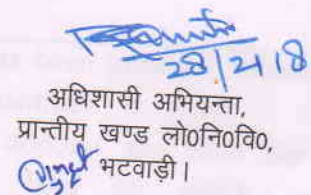 28/2/18
अधिशासी अभियन्ता,
प्रान्तीय खण्ड लो०नि०वि०,
भटवाड़ी।